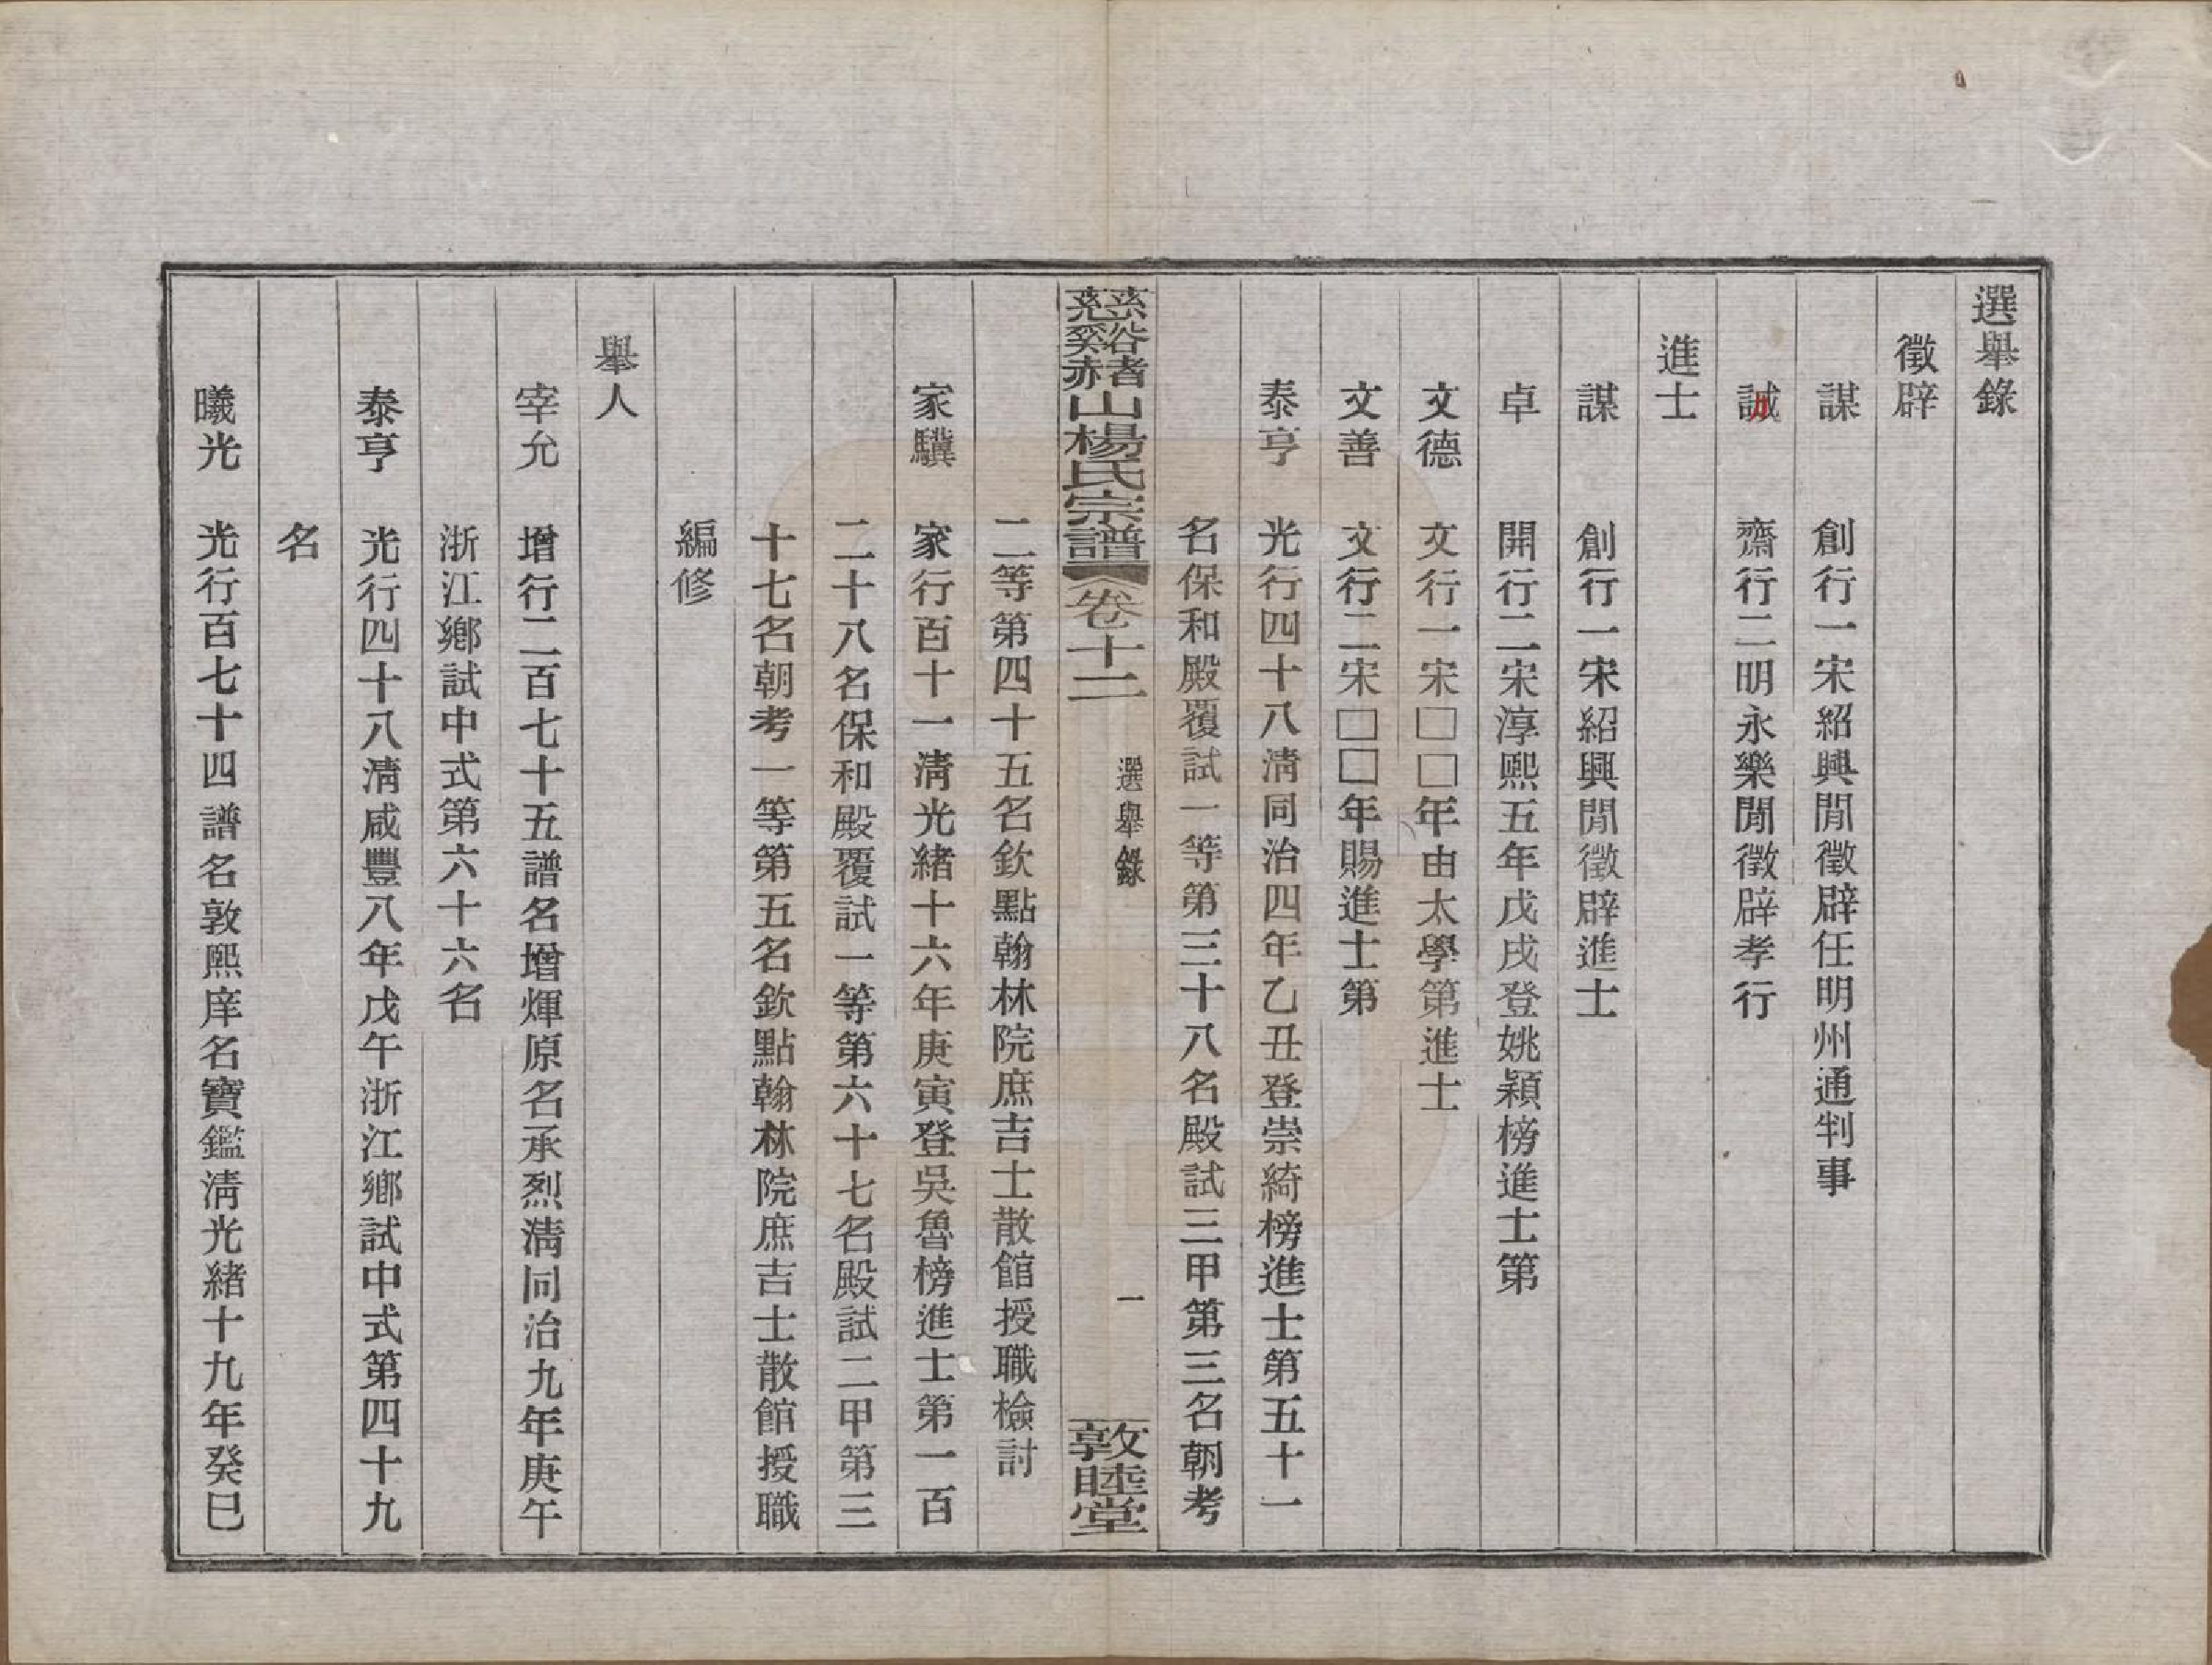 選舉錄
徵辟
謀　創行一宋紹興閒徵辟任明州通判事
誠　齋行二明永樂閒徵辟孝行
進士
謀　創行一宋紹興閒徵辟進士
卓　開行二宋淳熙五年戊戌登姚穎榜進士第
文德　文行一宋□□年由太學第進士
文善　文行二宋□□年賜進士第
泰亨　光行四十八淸同治四年乙丑登崇綺榜進士第五十一
名保和殿覆試一等第三十八名殿試三甲第三名朝考
慈谿赭山楊氏宗譜　卷十二　選舉錄　一　敦睦堂
二等第四十五名欽點翰林院庶吉士散館授職檢討
家驥　家行百十一淸光緒十六年庚寅登吳魯榜進士第一百
二十八名保和殿覆試一等第六十七名殿試二甲第三
十七名朝考一等第五名欽點翰林院庶吉士散館授職
編修
舉人
宰允　增行二百七十五譜名增煇原名承烈淸同治九年庚午
浙江鄉試中式第六十六名
泰亨　光行四十八淸咸豐八年戊午浙江鄉試中式第四十九
名
曦光　光行百七十四譜名敦熙庠名寶鑑淸光緒十九年癸巳